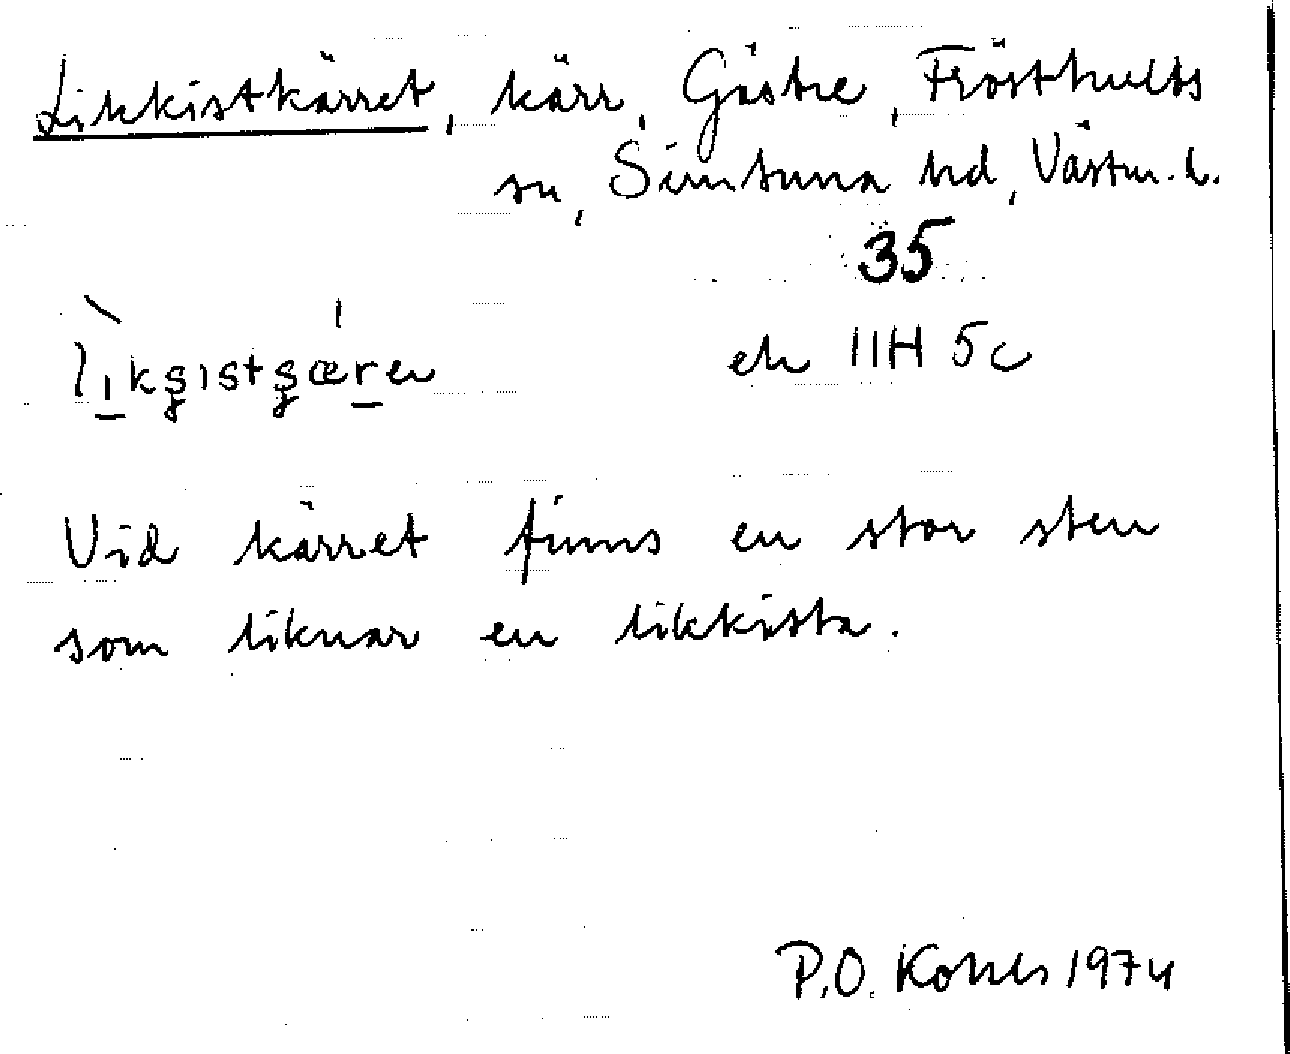 Likkistkärret, kärr, Gästre, Frösthults
sn, Simtuna hd, Västm. l.
35
ek 11H 5c
Vid kärret finns en stor sten
som liknar en likkista.
P.O. 1974